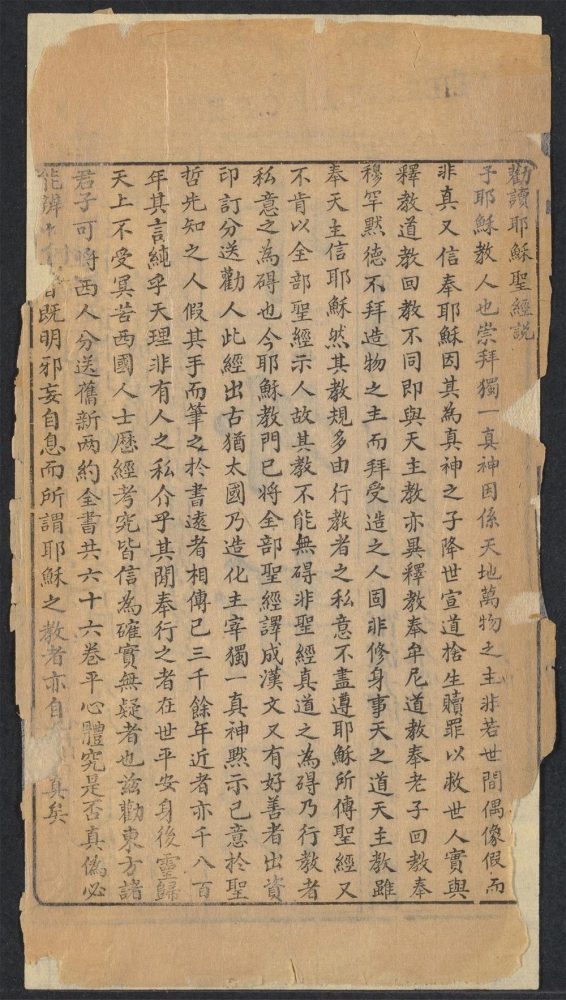 勸讀耶穌聖經說
子耶穌教人也崇拜獨一真神因係天地萬物之主非若世間偶像假而
非真又信奉耶穌因其為真神之子降世宣道捨生贖罪以救世人實與
釋教道教回教不同即與天主教亦異釋教奉牟尼道教奉老子回教奉
穆罕默德不拜造物之主而拜受造之人固非修身事天之道天主教雖
奉天主信耶穌然其教規多由行教者之私意不盡遵耶穌所傳聖經又
不肯以全部聖經示人故其教不能無碍非聖經真道之為碍乃行教者
私意之為碍也今耶穌教門已將全部聖經譯成漢文又有好善者出資
印訂分送勸人此經出古猶太國乃造化主宰獨一真神黙示己意於聖
哲先知之人假其手而筆之於書遠者相傳已三千餘年近者亦千八百
年其言純乎天理非有人之私介乎其間奉行之者在世平安身後靈歸
天上不受冥苦西國人士歷經考究皆信為確實無疑者也茲勸東方諸
君子可將西人分送舊新兩約全書共六十六卷平心體究是否真偽必
能辨 既明邪妄自息而所謂耶穌之教者亦自 真矣